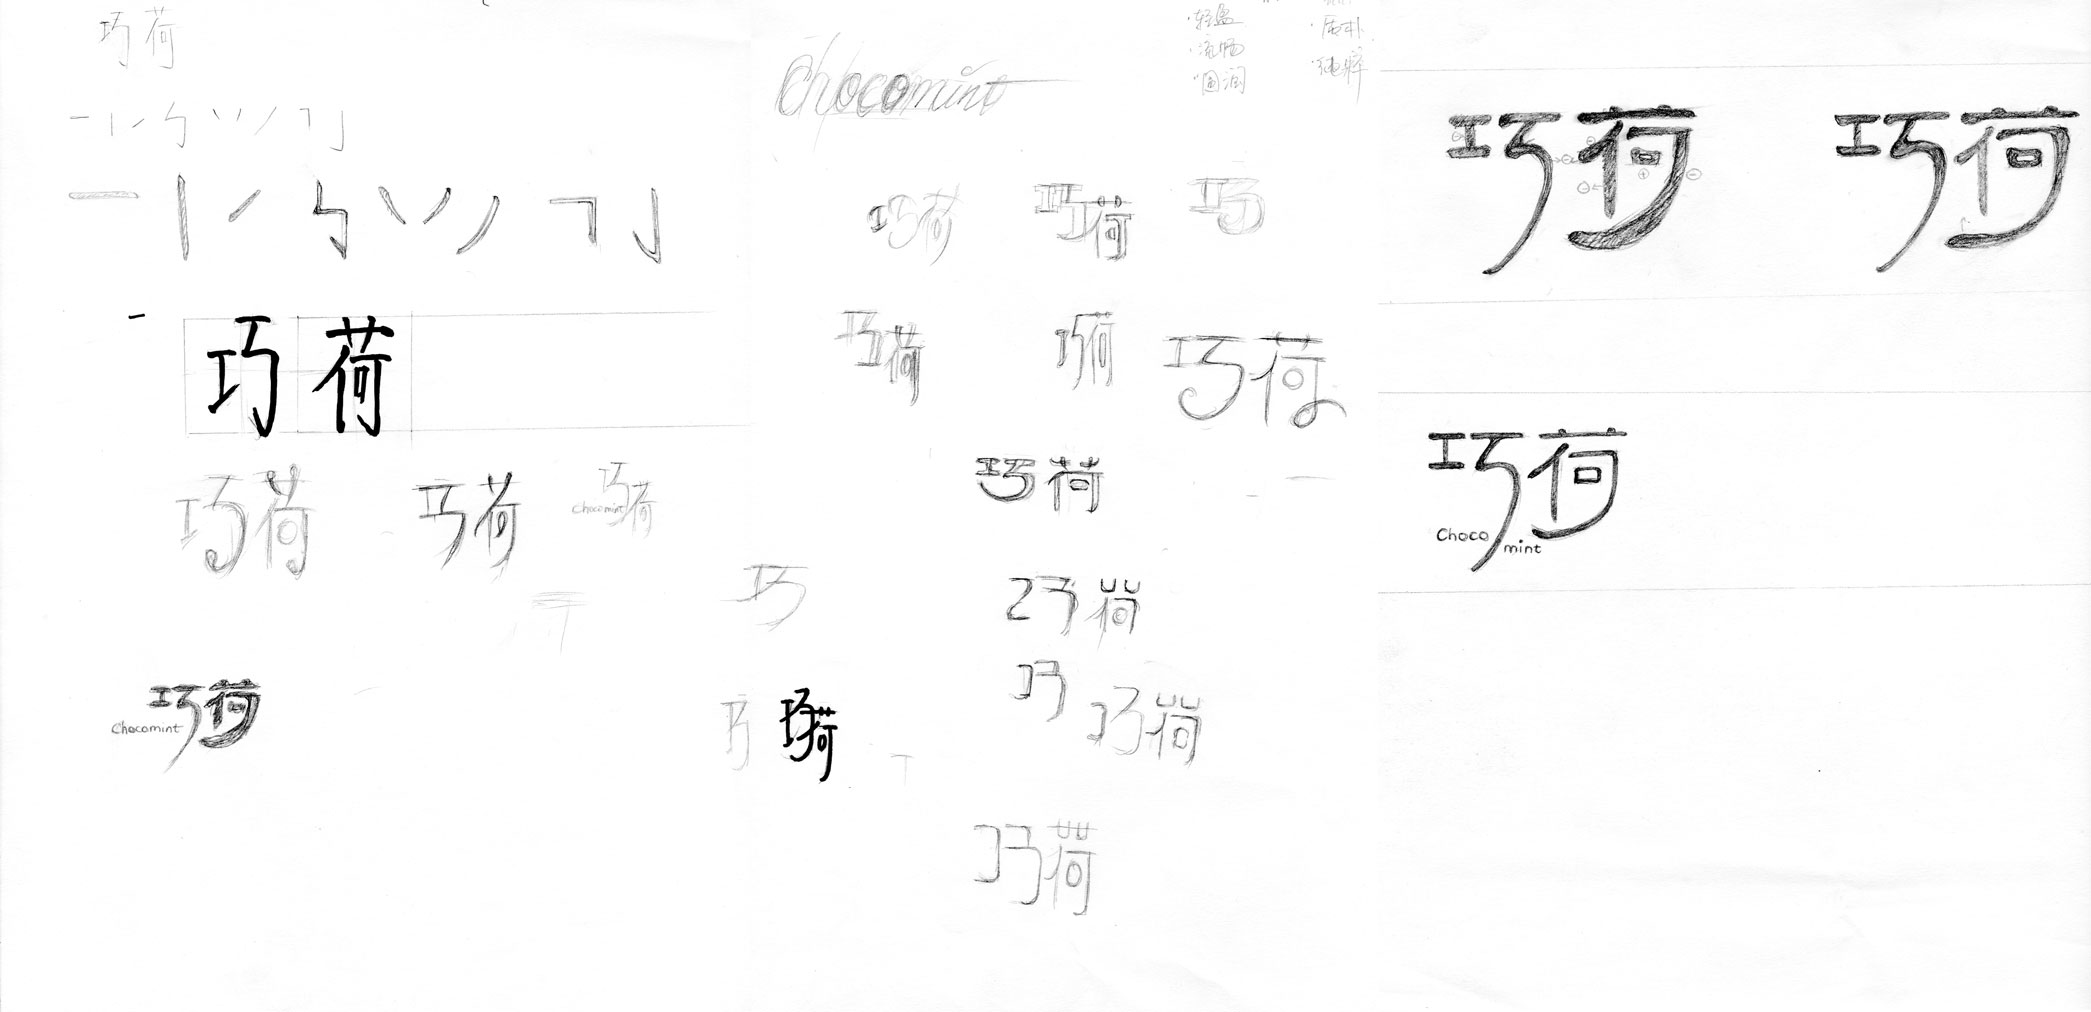 巧荷
巧荷
巧荷
巧荷
巧荷
Chocomint
巧荷
Chocomint
Chocomint
·轻盈
·流畅
·圆润
·质朴
·纯粹
巧荷
巧荷
巧
巧荷
巧荷
巧荷
巧荷
巧
巧荷
巧
巧荷
巧
巧荷
巧荷
巧荷
巧荷
巧荷
Choco
mint